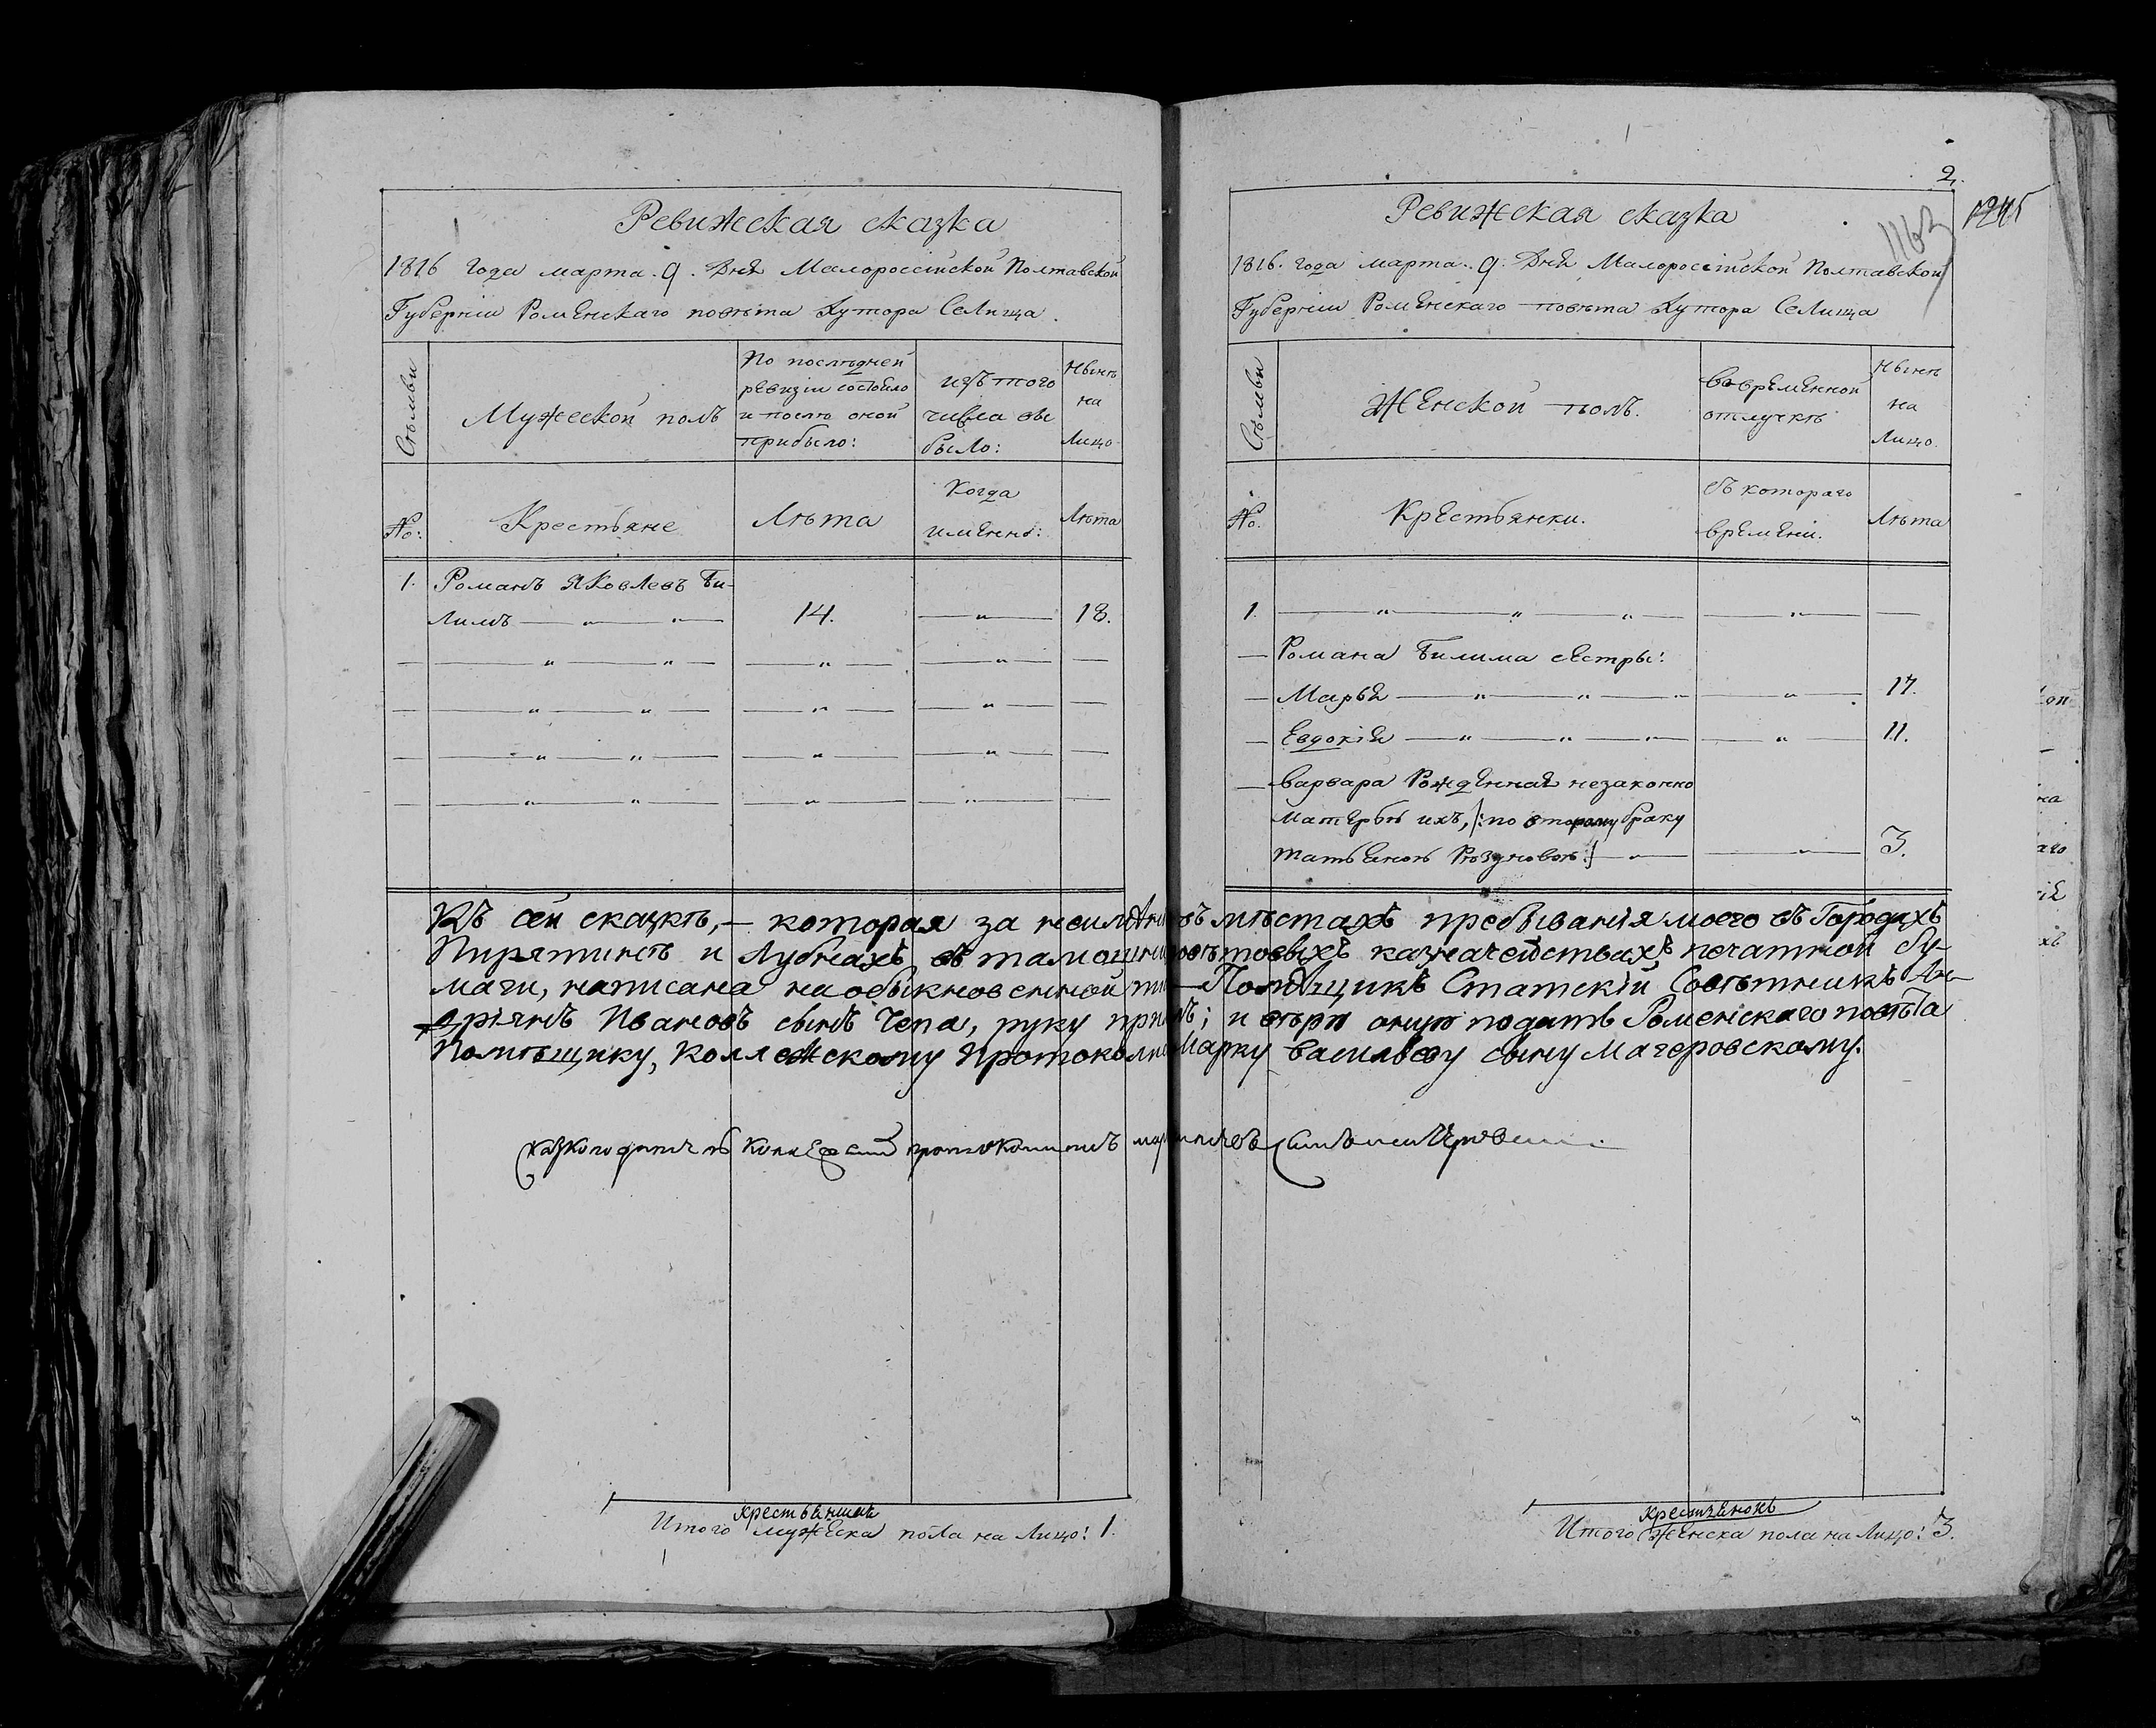 Ревижская сказка
1816 года марта. 9. дня Малороссійской Полтавской
Губерніи Роменскаго повѣта Хутора Селища.
Сѣмьи
Мужеской полъ
По послѣдней
ревизіи состояло
и послѣ оной
прибыло:
изъ того
числа вы
было:
Нынѣ
на
Лицо
№:
Крестьяне
Лѣта
Когда
именно:
Лѣта
1. Романъ Яковлевъ Би-
лимъ — " — " — 14. — " — 18.
— — " — " — — " — — " — —
— — " — " — — " — — " — —
— — " — " — — " — — " — —
— — " — " — — " — — " — —
2.
1245
1163
Ревижская сказка
1816. года марта. 9. дня Малороссійской Полтавской
Губерніи Роменскаго повѣта Хутора Селища
Сѣмьи
Женской полъ.
Во временной
отлучкѣ
Нынѣ
на
Лицо.
№.
Крестьянки.
съ котораго
времени.
Лѣта
1. — " — " — " — — " — —
— Романа Билима сестры:
— Марья — " — " — " — — " — 17.
— Евдокія — " — " — " — — " — 11.
— Варвара Рожденная незаконно
Матерью ихъ, /: по второму браку
Татьяною :/ — " — — " — 3.
Къ сей сказкѣ, — которая за въ мѣстахъ пребыванія моего въ Городахъ
Пирятинѣ и Лубнахъ въ казначействахъ печатной бу-
маги, написана на обыкновенной — Помѣщикъ Статскій Совѣтникъ Ан-
дріянъ Ивановъ сынъ Чепа, руку и подать Роменскаго повѣта
Помѣщику, Коллежскому Марку Васильеву сыну Магеровскому.
протоколистъ
Крестьянинъ
Итого мужеска пола на Лицо: 1.
Крестьянокъ
Итого женска пола на Лицо: 3.